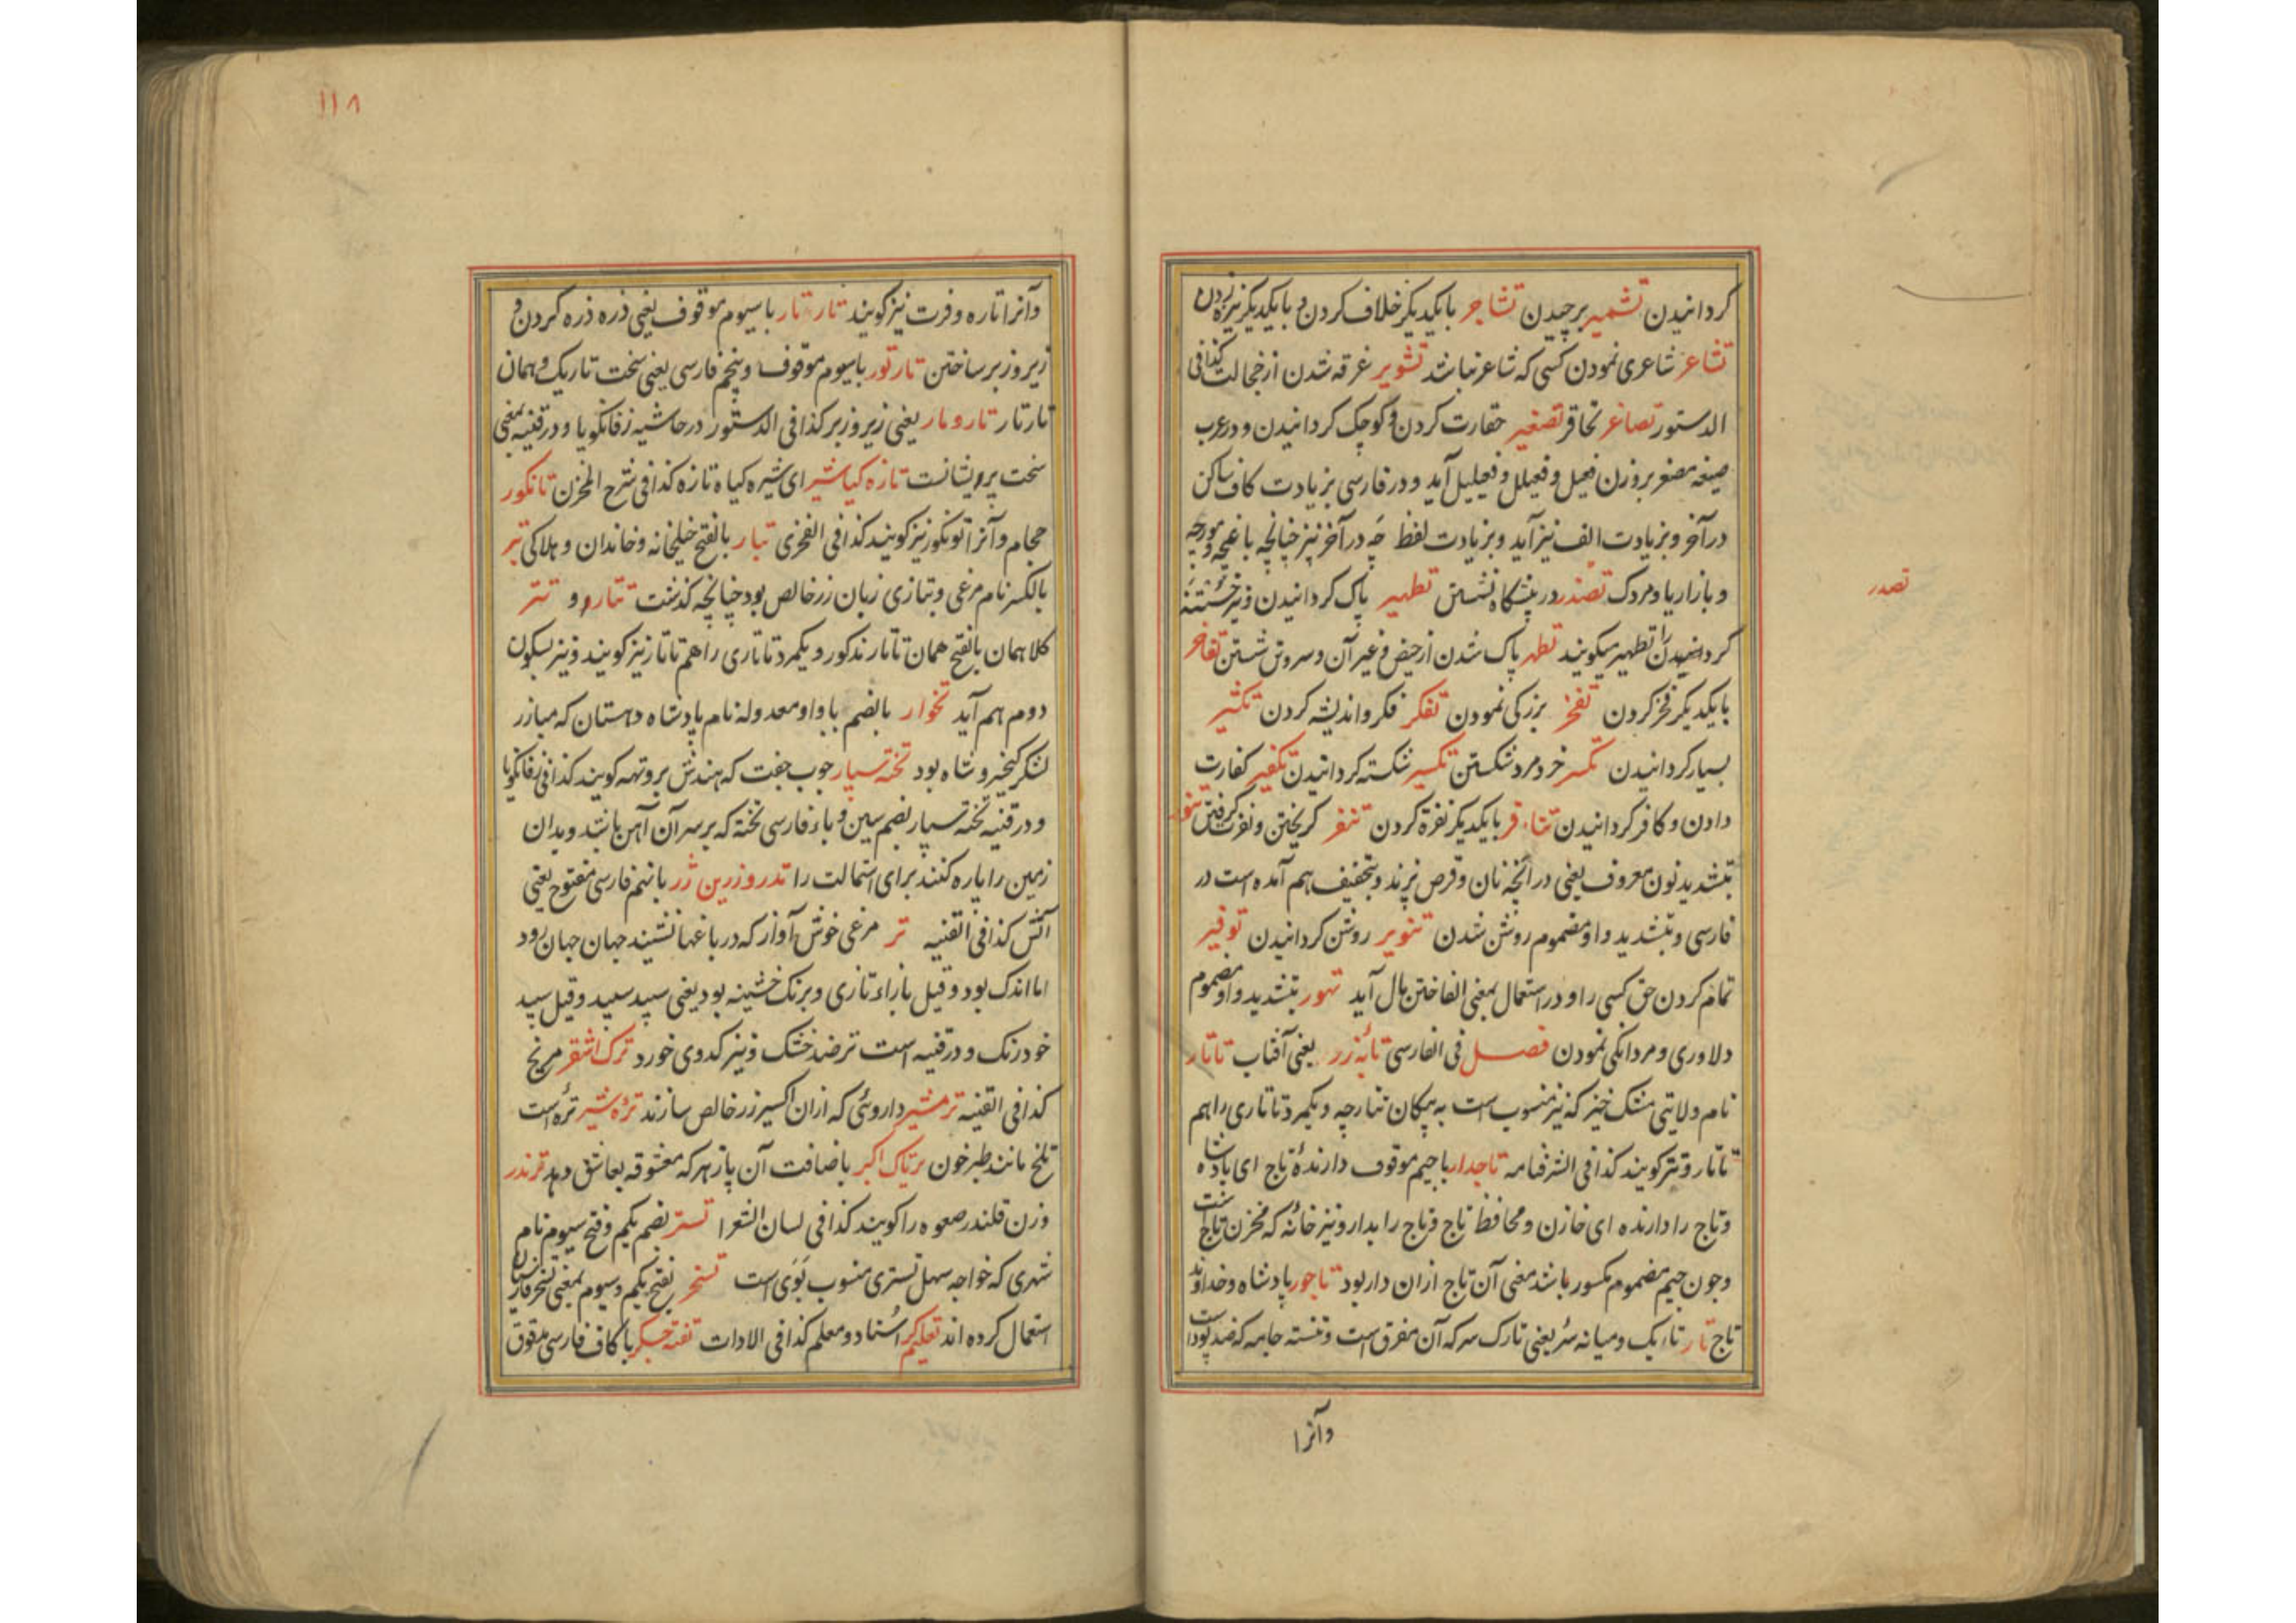 گردانیدن تشمیر برچیدن تشاجر بایکدیگر خلاف کردن و بایکدیگر نیزه زدن
تشاعر شاعری نمودن کسی که شاعر نباشد تشویر غرقه شدن از خجالت کذا فی
الدستور تصاغر تحاقر تصغیر حقارت کردن و کوچک گردانیدن و در عرب
صیغه مصغر بر وزن فعیل و فعیلل و فعیلیل آید و در فارسی بزیادت کاف ساکن
در آخر و بزیادت الف نیز آید و بزیادت لفظ چه در آخر نیز چنانچه باغچه و مورچه
و بازاریا و مردک تصدر در پیشگاه نشستن تطهیر پاک گردانیدن و نیز ختنه
تصدر
گردانیدن را تطهیر میگویند تطهر پاک شدن از حیض و غیر آن و سر و تن شستن تفاخر
بایکدیگر فخر کردن تفخر بزرگی نمودن تفکر فکر و اندیشه کردن تکثیر
بسیار گردانیدن تکسر خرد مرد شکستن تکسیر شکسته گردانیدن تکفیر کفارت
دادن و کافر گردانیدن تنافر بایکدیگر نفرة کردن تنفر گریختن و نفرت گرفتن تنور
بتشدید نون معروف یعنی در آنچه نان و قرص پزند و بتخفیف هم آمده است در
فارسی و بتشدید واو مضموم روشن شدن تنویر روشن گردانیدن توفیر
تمام کردن حق کسی را و در استعمال بمعنی الفاختن مال آید تهور بتشدید واو مضموم
دلاوری و مردانگی نمودن فصل فی الفارسی تابه زر یعنی آفتاب تاتار
نام ولایتی مشک خیز که نیز منسوب است به پیکان تتارچه و یکمرد تاتاری را هم
تاتار و تتر گویند کذا فی الشرفنامه تاجدار با جیم موقوف دارنده تاج ای بادشاه
و تاج را دارنده ای خازن و محافظ تاج و تاج را بدار و نیز خانه که مخزن تاج است
و چون جیم مضموم مکسور باشد معنی آن تاج از ان دار بود تاجور پادشاه و خداوند
تاج تار تاریک و میانه سر یعنی تارک سر که آن مفرق است و تنسته جامه که ضد پود است
وآنرا
۱۱۸
وآنرا تاره و فرت نیز گویند تارتار با سیوم موقوف یعنی ذره ذره کردن و
زیر و زبر ساختن تار تور با سیوم موقوف و پنجم فارسی یعنی سخت تاریک و همان
تارتار تارومار یعنی زیر و زبر کذا فی الدستور در حاشیه زفانگویا و در قنیه بمعنی
سخت پریشانست تازه گیا شیر ای شیره گیاه تازه کذا فی شرح المخزن تانگور
حجام و آنرا تونگور نیز گویند کذا فی الفخری تبار بالفتح خیلخانه و خاندان و هلاکی تبر
بالکسر نام مرغی و بتازی زبان زر خالص بود چنانچه گذشت تتار و تتر
کلاهمان بالفتح همان تاتار مذکور و یکمرد تاتاری را هم تاتار نیز گویند و نیز بسکون
دوم هم آید تخوار بالضم با واو معدوله نام پادشاه دهستان که مبارز
لشکر کیخسرو شاه بود تخته سپار چوب جفت که هندش پروتهه گویند کذا فی زفانگویا
و در قنیه تخته سپار بضم سین و باء فارسی تخته که بر سر آن آهن باشد و بدان
زمین را پاره کنند برای استمالت را تدرو زرین ژر با پنجم فارسی مفتوح یعنی
آتش کذا فی القنیه تر مرغی خوش آواز که در باغها نشیند جهان جهان رود
اما اندک بود و قیل با زاء تازی و برنگ خشینه بود یعنی سپید سپید و قیل سپید
خود رنگ و در قنیه است تر ضد خشک و نیز کدوی خورد ترک اشقر مریخ
کذا فی القنیه ترمشیر داروئی که از ان اکسیر زر خالص سازند تره شیر تره است
تلخ مانند طبرخون تریاک اکبر باضافت آن پازهر که معشوقه بعاشق دهد ترندر
وزن قلندر صعوه را گویند کذا فی لسان الشعرا تستر بضم یکم و فتح سیوم نام
شهری که خواجه سهل تستری منسوب بوی است تسخر بفتح یکم و سیوم بمعنی تسخر فارسیان
استعمال کرده اند تعلیمگر استاد و معلم کذا فی الادات تفته جگر با کاف فارسی موقوق